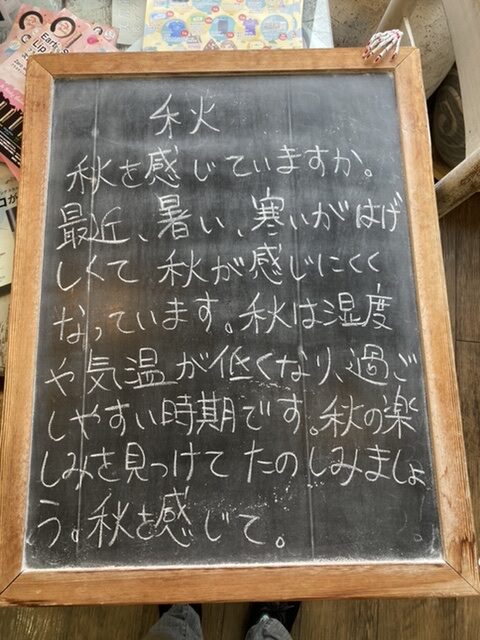 秋
秋を感じていますか。
最近、暑い、寒いがはげ
しくて秋が感じにくく
なっています。秋は湿度
や気温が低くなり、過ご
しやすい時期です。秋の楽
しみを見つけてたのしみましょ
う。秋を感じて。